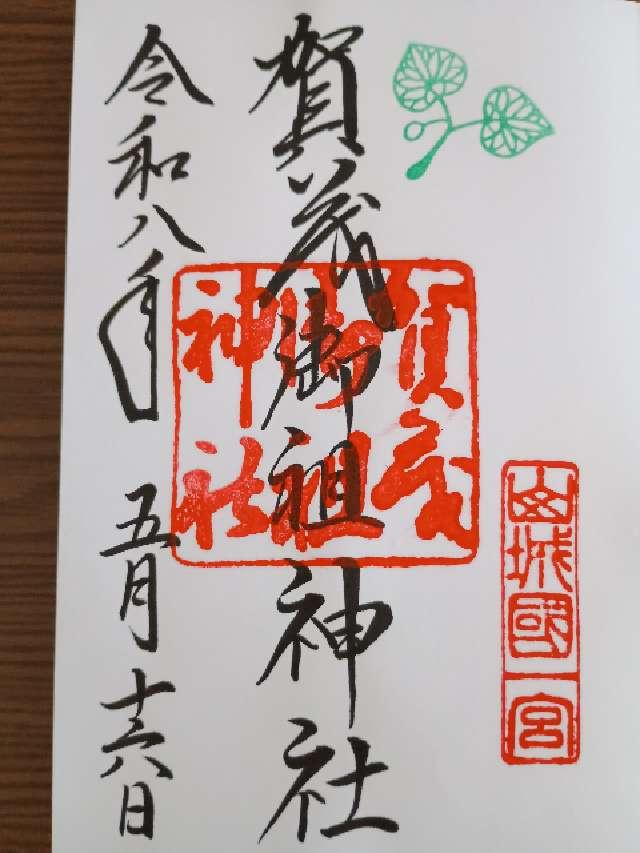 山城國一宮
賀茂御祖神社
賀茂
御祖
神社
令和八年 五月十六日